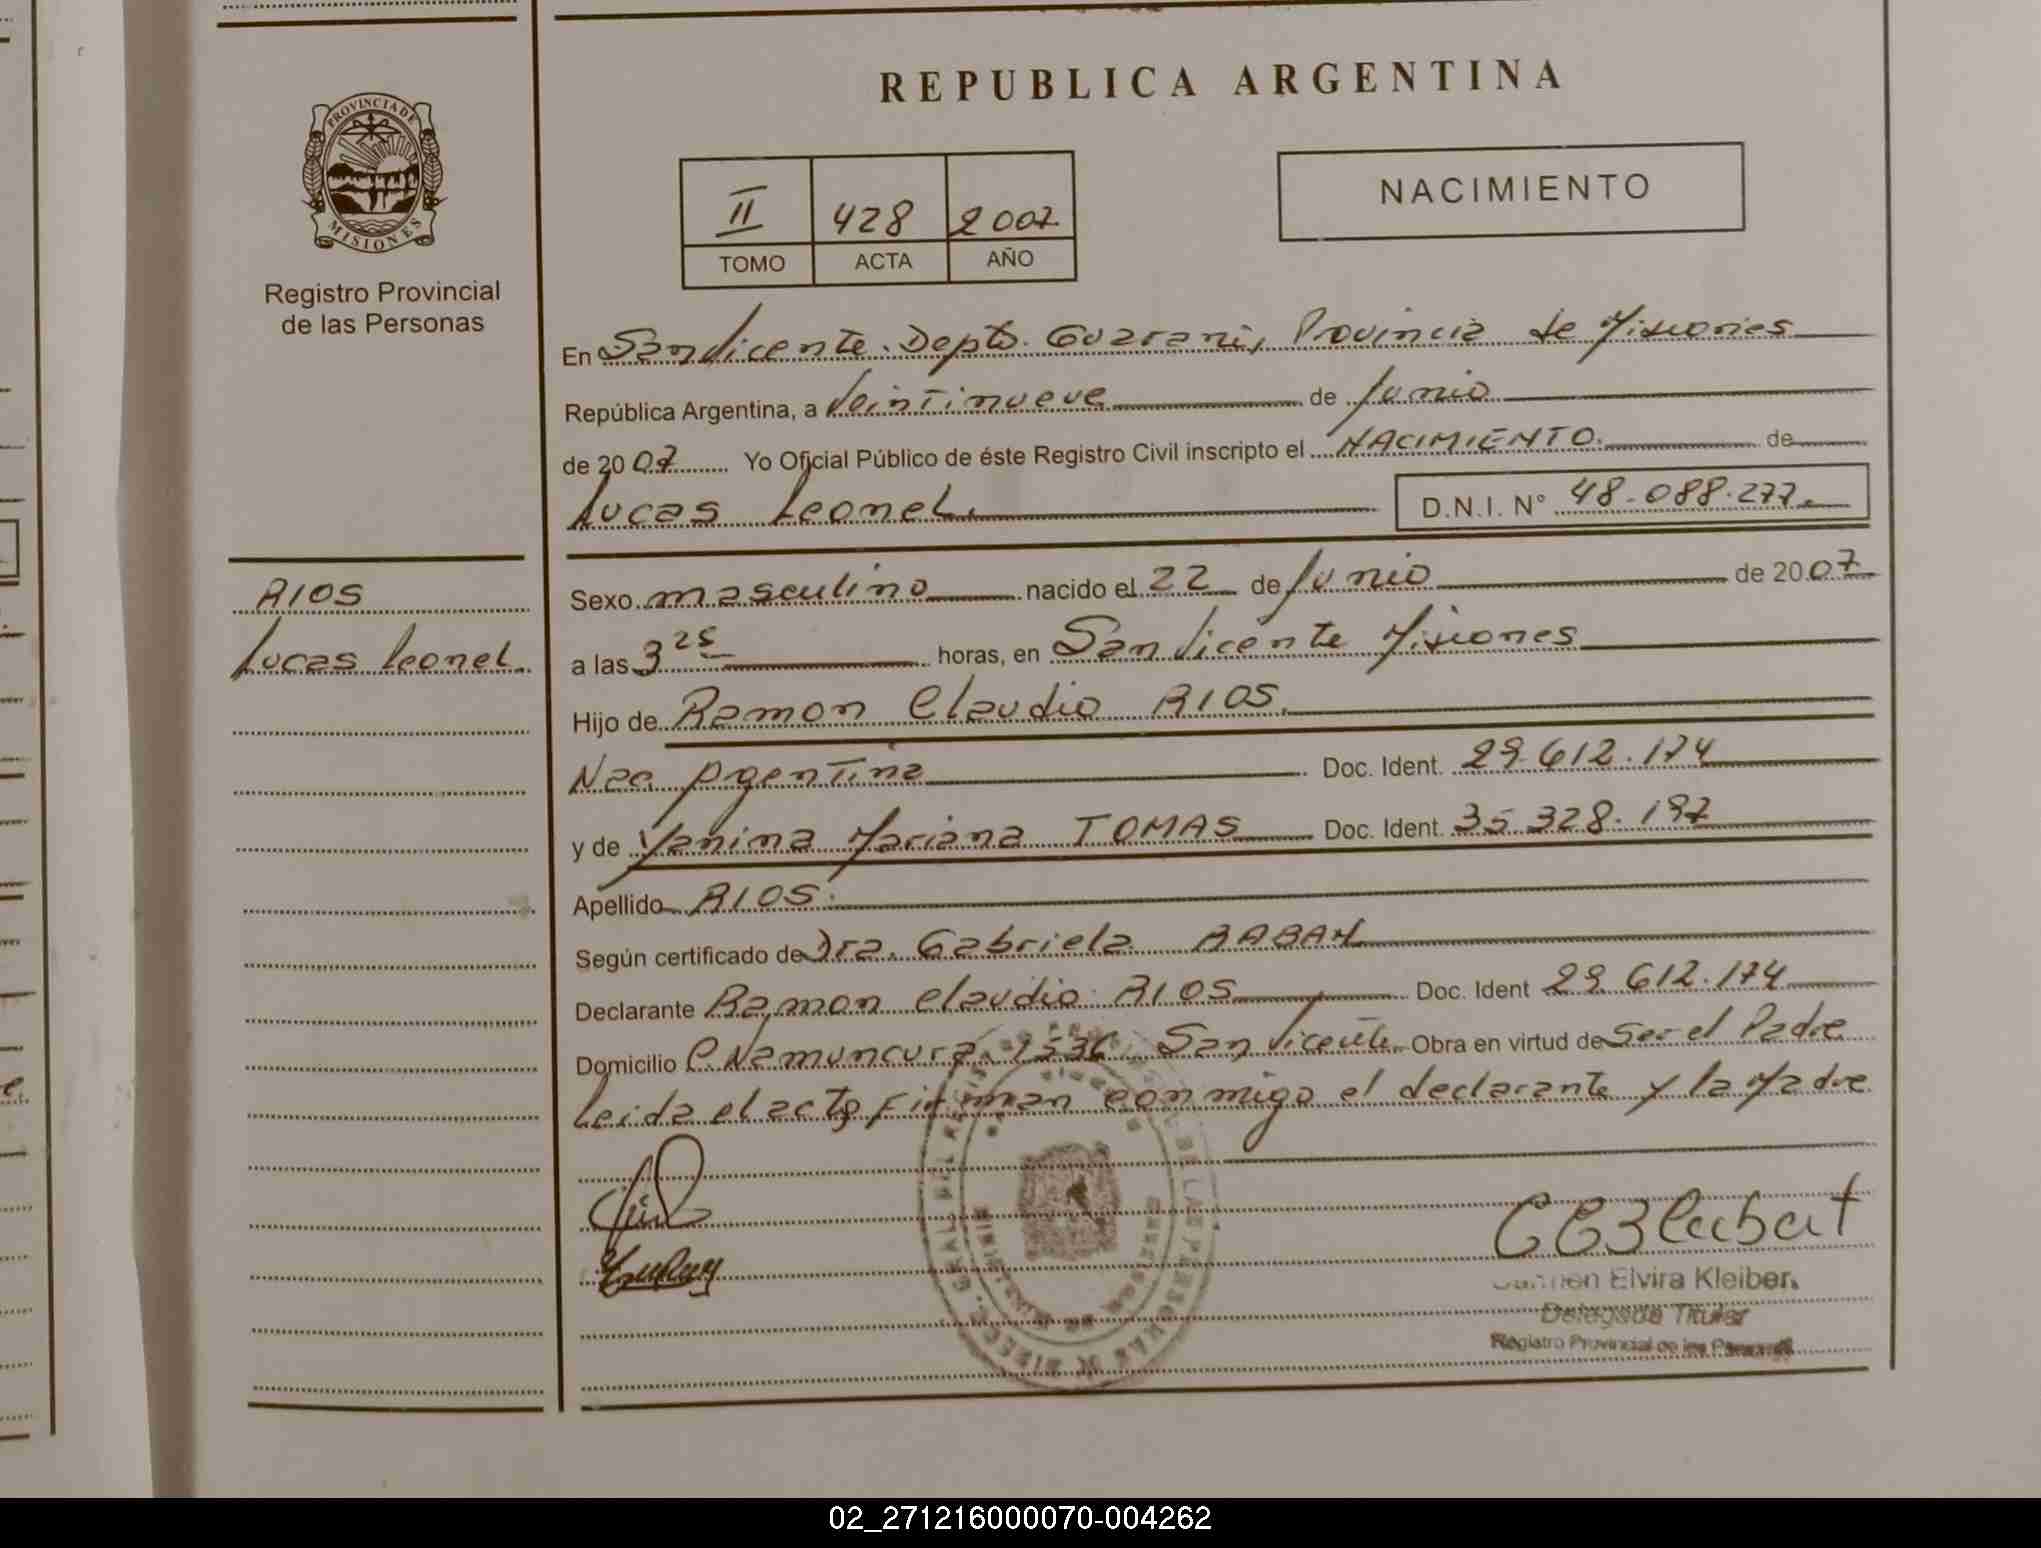 PROVINCIA DE
MISIONES
Registro Provincial
de las Personas
RIOS
Lucas Leonel
REPUBLICA ARGENTINA
II 428 2007
TOMO ACTA AÑO
NACIMIENTO
En San Vicente. Depto. Guarani, Provincia de Misiones
República Argentina, a Veintinueve de Junio
de 2007 Yo Oficial Público de éste Registro Civil inscripto el NACIMIENTO. de
Lucas Leonel. D.N.I. N° 48.088.277.
Sexo masculino nacido el 22 de Junio de 2007
a las 3 25 horas, en San Vicente Misiones
Hijo de Ramon Claudio RIOS.
Nac. Argentina Doc. Ident. 29.612.174
y de Yanina Mariana TOMAS Doc. Ident. 35.328.197
Apellido RIOS.
Según certificado de Dra. Gabriela
Declarante Ramon Claudio RIOS Doc. Ident 29.612.174
Domicilio C. Namuncura 1536 San Vicente Obra en virtud de Ser el Padre
Leida el acto Firman conmigo el declarante y la Madre
Carmen Elvira Kleiber
Delegada Titular
Registro Provincial de las Personas
02_271216000070-004262